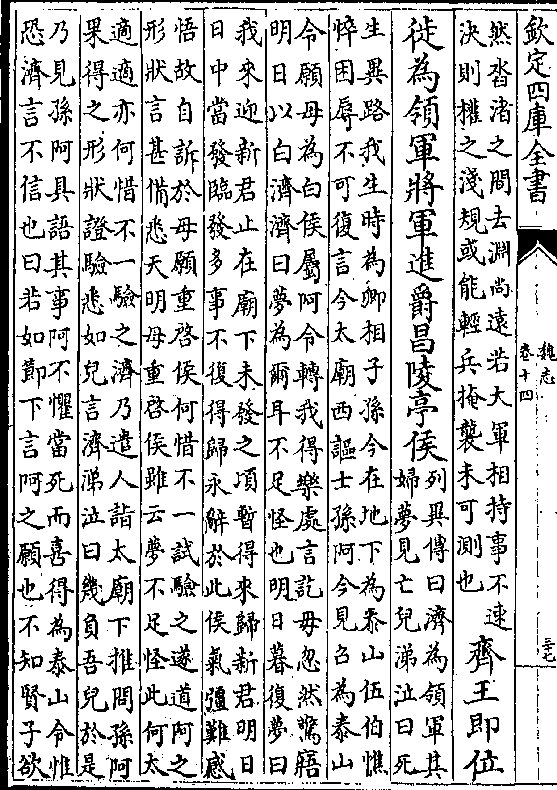 欽定四庫全書
魏志
卷十四
三七
然沓渚之間去淵尚遠若大軍相持事不速
決則權之淺規或能輕兵掩襲未可測也
齊王即位
徙為領軍將軍進爵昌陵亭侯
列異傳曰濟為領軍其
婦夢見亡兒涕泣曰死
生異路我生時為卿相子孫今在地下為泰山伍伯憔
悴困辱不可復言今太廟西謳士孫阿今見召為泰山
令願母為白侯屬阿令轉我得樂處言訖母忽然驚寤
明日以白濟濟曰夢為爾耳不足怪也明日暮復夢曰
我來迎新君止在廟下未發之頃暫得來歸新君明日
日中當發臨發多事不復得歸永辭於此侯氣彊難感
悟故自訴於母願重啓侯何惜不一試驗之遂道阿之
形狀言甚備悉天明母重啓侯雖云夢不足怪此何太
適適亦何惜不一驗之濟乃遣人詣太廟下推問孫阿
果得之形狀證驗悉如兒言濟涕泣曰幾負吾兒於是
乃見孫阿具語其事阿不懼當死而喜得為泰山令惟
恐濟言不信也曰若如節下言阿之願也不知賢子欲